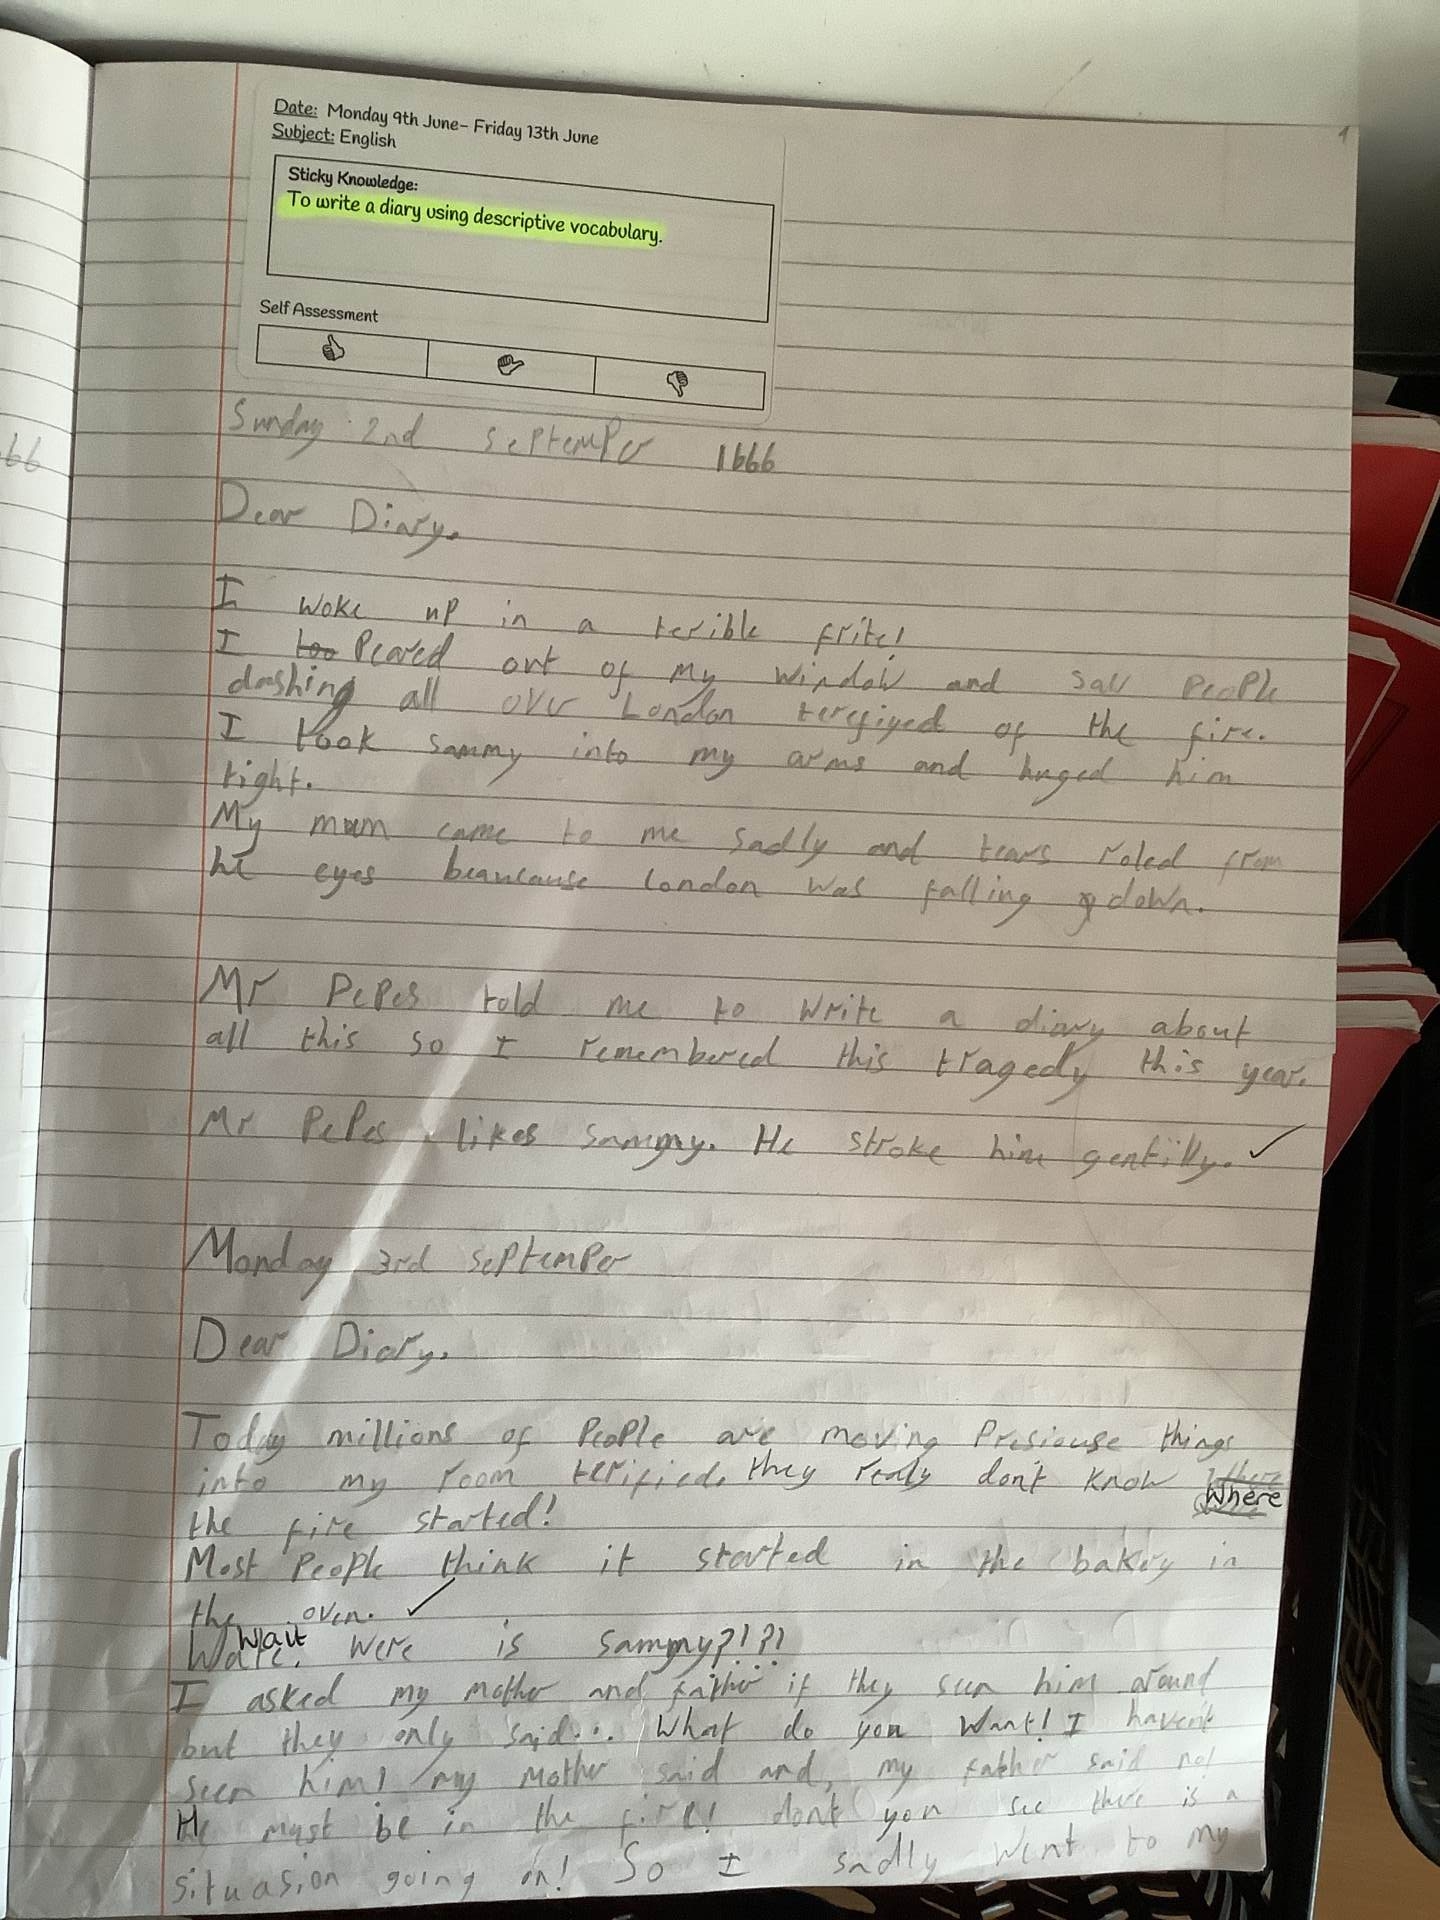 Date: Monday 9th June- Friday 13th June
Subject: English
Sticky Knowledge:
To write a diary using descriptive vocabulary.
Self Assessment
66
Sunday 2nd SePtemPer 1666
Dear Diary.
I woke up in a terible frite!
I too Peared out of my window and saw PeoPle
dashing all over London terefiyed of the fire.
I took sammy into my arms and huged him
tight.
My mum came to me sadly and tears roled from
he eyes beaucause london was falling down.
Mr PePes told me to write a diary about
all this so I remembered this tragedy this year.
Mr PePes likes sammy. He stroke him gentilly.
Monday 3rd sePtemPer
Dear Diary.
Today millions of PeoPle are moving Presiouse things
into my room terified. they realy don't know where
Where
the fire started!
Most PeoPle think it started in the bakery in
the oven.
Wait
Were is sammy?!?!
I asked my mother and father if they seen him around
but they only said... What do you Want! I haven't
seen him! my mother said and, my father said no!
He must be in the fire! don't you see there is a
situasion going on! So I sadly went to my